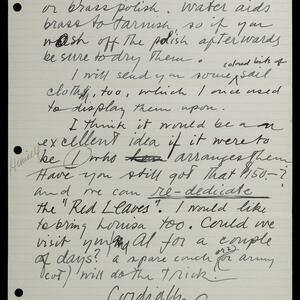 or brass polish. Water aids
brass to tarnish so if you
wash off the polish afterwards
be sure to dry them.
colored bits of
I will send you some sail
cloth, too, which I once used
to display them upon.
I think it would be a
excellent idea if it were to
Himself
be (I) who arranges them
Have you still got that $150-?
and we can re-dedicate
the "Red Leaves". I would like
to bring Louisa too. Could we
visit you, Al for a couple
of days? a spare couch (or army
cot) will do the trick.
Cordially